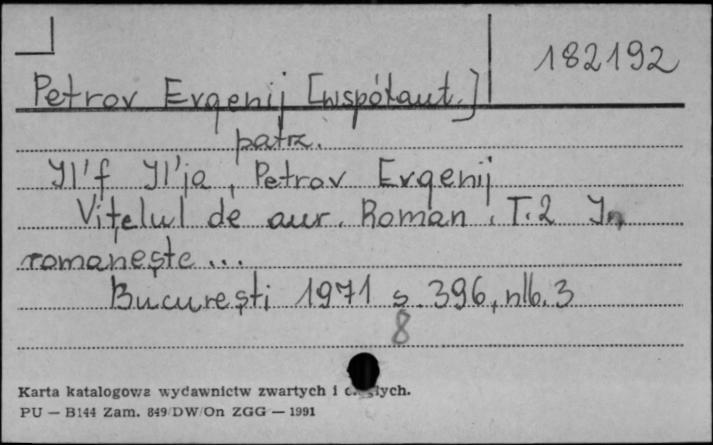 182192
Petrov Evgenij [współaut.]
patrz.
Il'f Il'ja, Petrov Evgenij
Vițelul de aur. Roman. T.2 In
românește...
București 1971 s. 396, nlb. 3
8
Karta katalogowa wydawnictw zwartych i ciągłych.
PU — B144 Zam. 849/DW/On ZGG — 1991